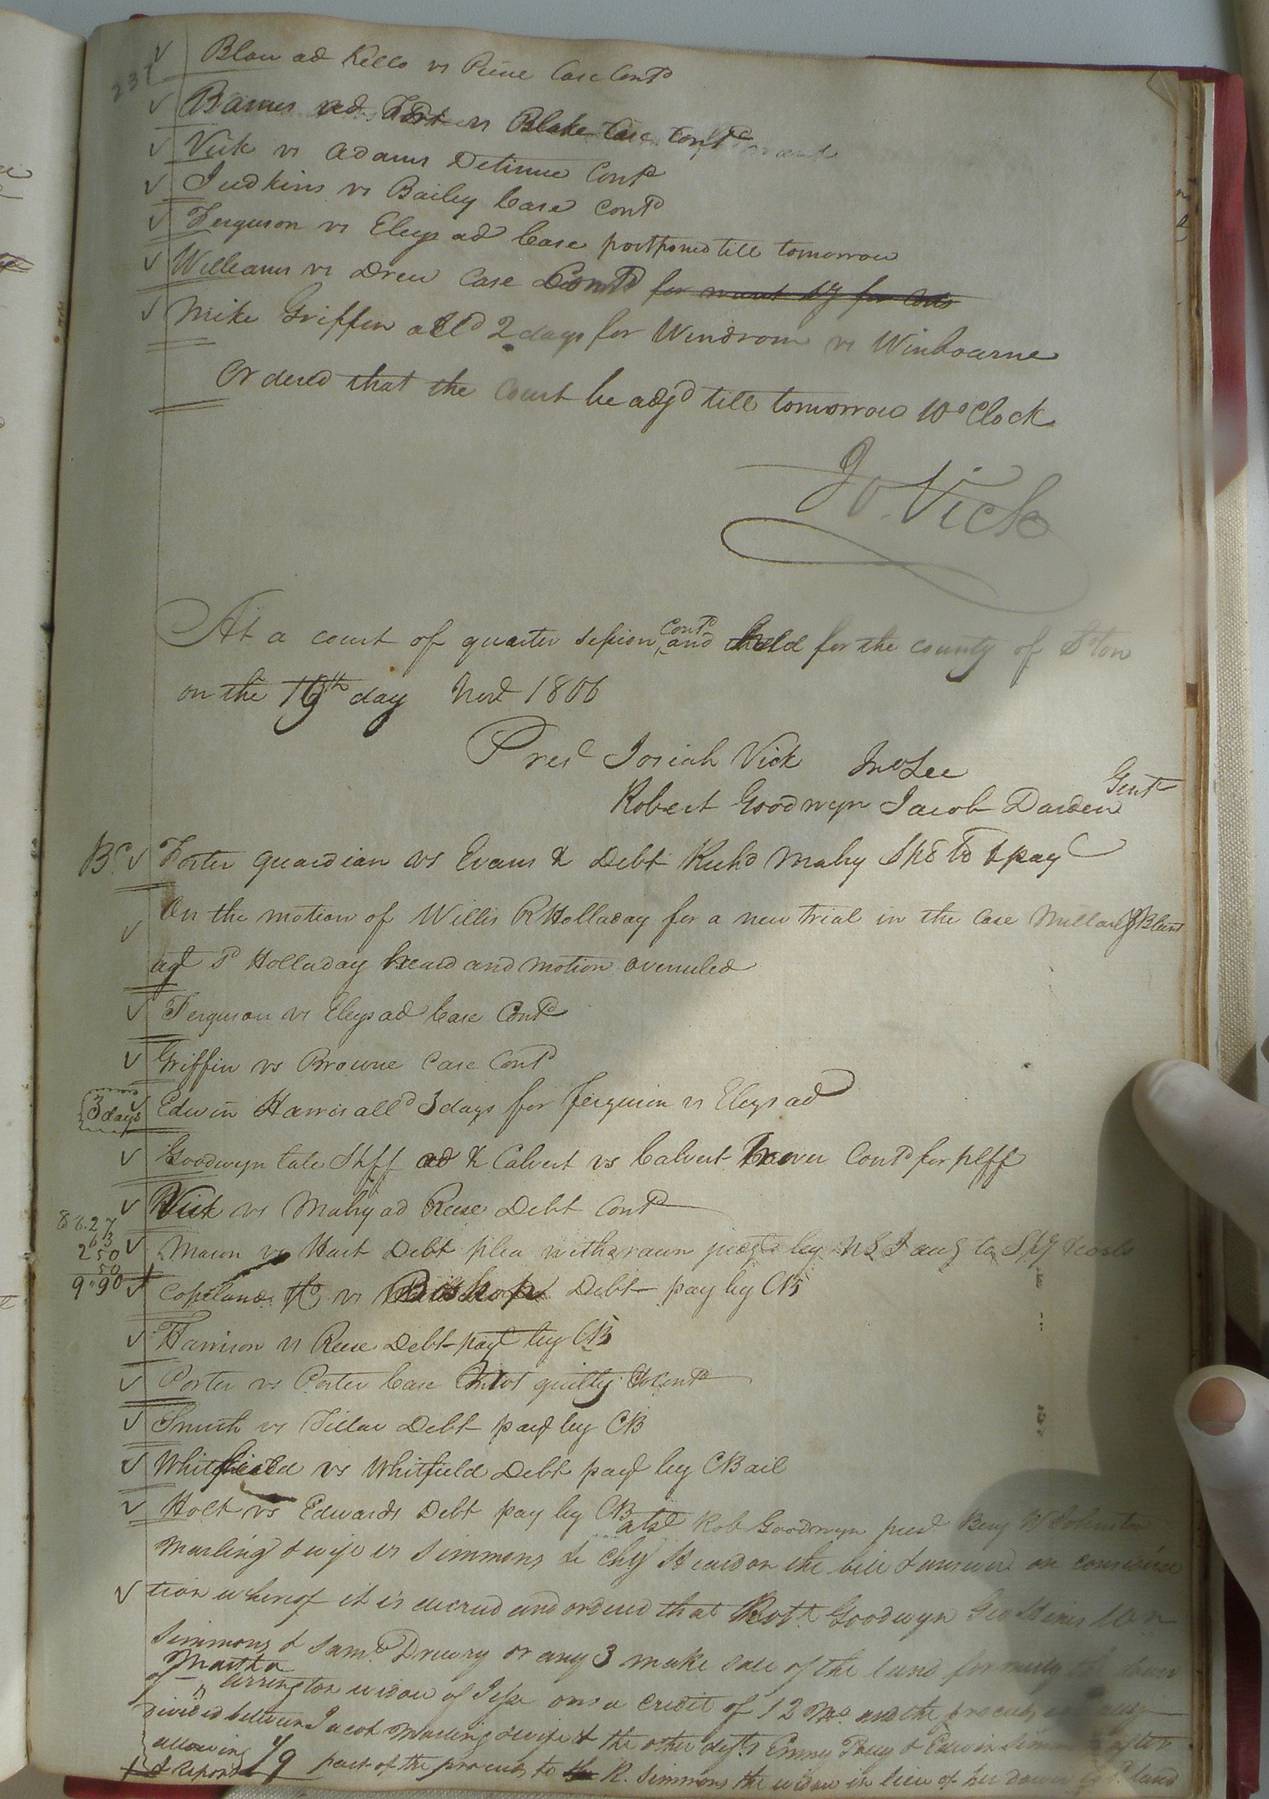 237
Blow ad Kello vs Prince Case Contd
Barnes ad. vs Blake Case Contd
Vick vs Adams Detinue Contd
Judkins vs Bailey Case Contd
Ferguson vs Eleys ad Case postponed till tomorrow
Williams vs Drew Case Contd for want of for costs
Mike Griffin alld 2 days for Windrom vs Winbourne
Ordered that the Court be adjd till tomorrow 10 oClock
Jo. Vick
At a court of quarter session contd and held for the county of Ston
on the 19th day Novr 1806
Presd Josiah Vick Jno Lee
Robert Goodwyn Jacob Darden Gent
Porter guardian vs Evans & Debt Richd Mabry Spl bd & pay
On the motion of Willis R Holladay for a new trial in the case Millar & Blunt
agt sd Holladay heard and motion overruled
Ferguson vs Eleys ad Case Contd
Griffin vs Browne Case Contd
3 days Edwin Harris alld 3 days for Ferguson vs Eleys ad
Goodwyn late Shff & Calvert vs Calvert Trover Contd for plff
Vick vs Mabry ad Reese Debt Contd
86.27
63
2 50
50
9.90
Mason vs Hart Debt plea withdrawn & costs
Copeland vs Bishop Debt pay by CB
Harrison vs Reese Debt pay by CB
Porter vs Porter Case Not guilty Contd
Smith vs Tillar Debt pay by CB
Whitfield vs Whitfield Debt pay by CBail
Holt vs Edwards Debt pay by CB Robt Goodwyn presd Benj W Johnston
Marling & wife vs Simmons & Chy Heard on the bill & answer on considera
tion whereof it is decreed and ordered that Robt Goodwyn
Simmons & Saml Drewry or any 3 make sale of the land formerly
of Martha Arrington widow of Jesse on a credit of 12 Mo. and the proceeds
divided between Jacob Marling & wife & the other defts & Edwin
allowing 1/9 part of the proceeds to R. Simmons the widow in lieu of her dower land
& Report